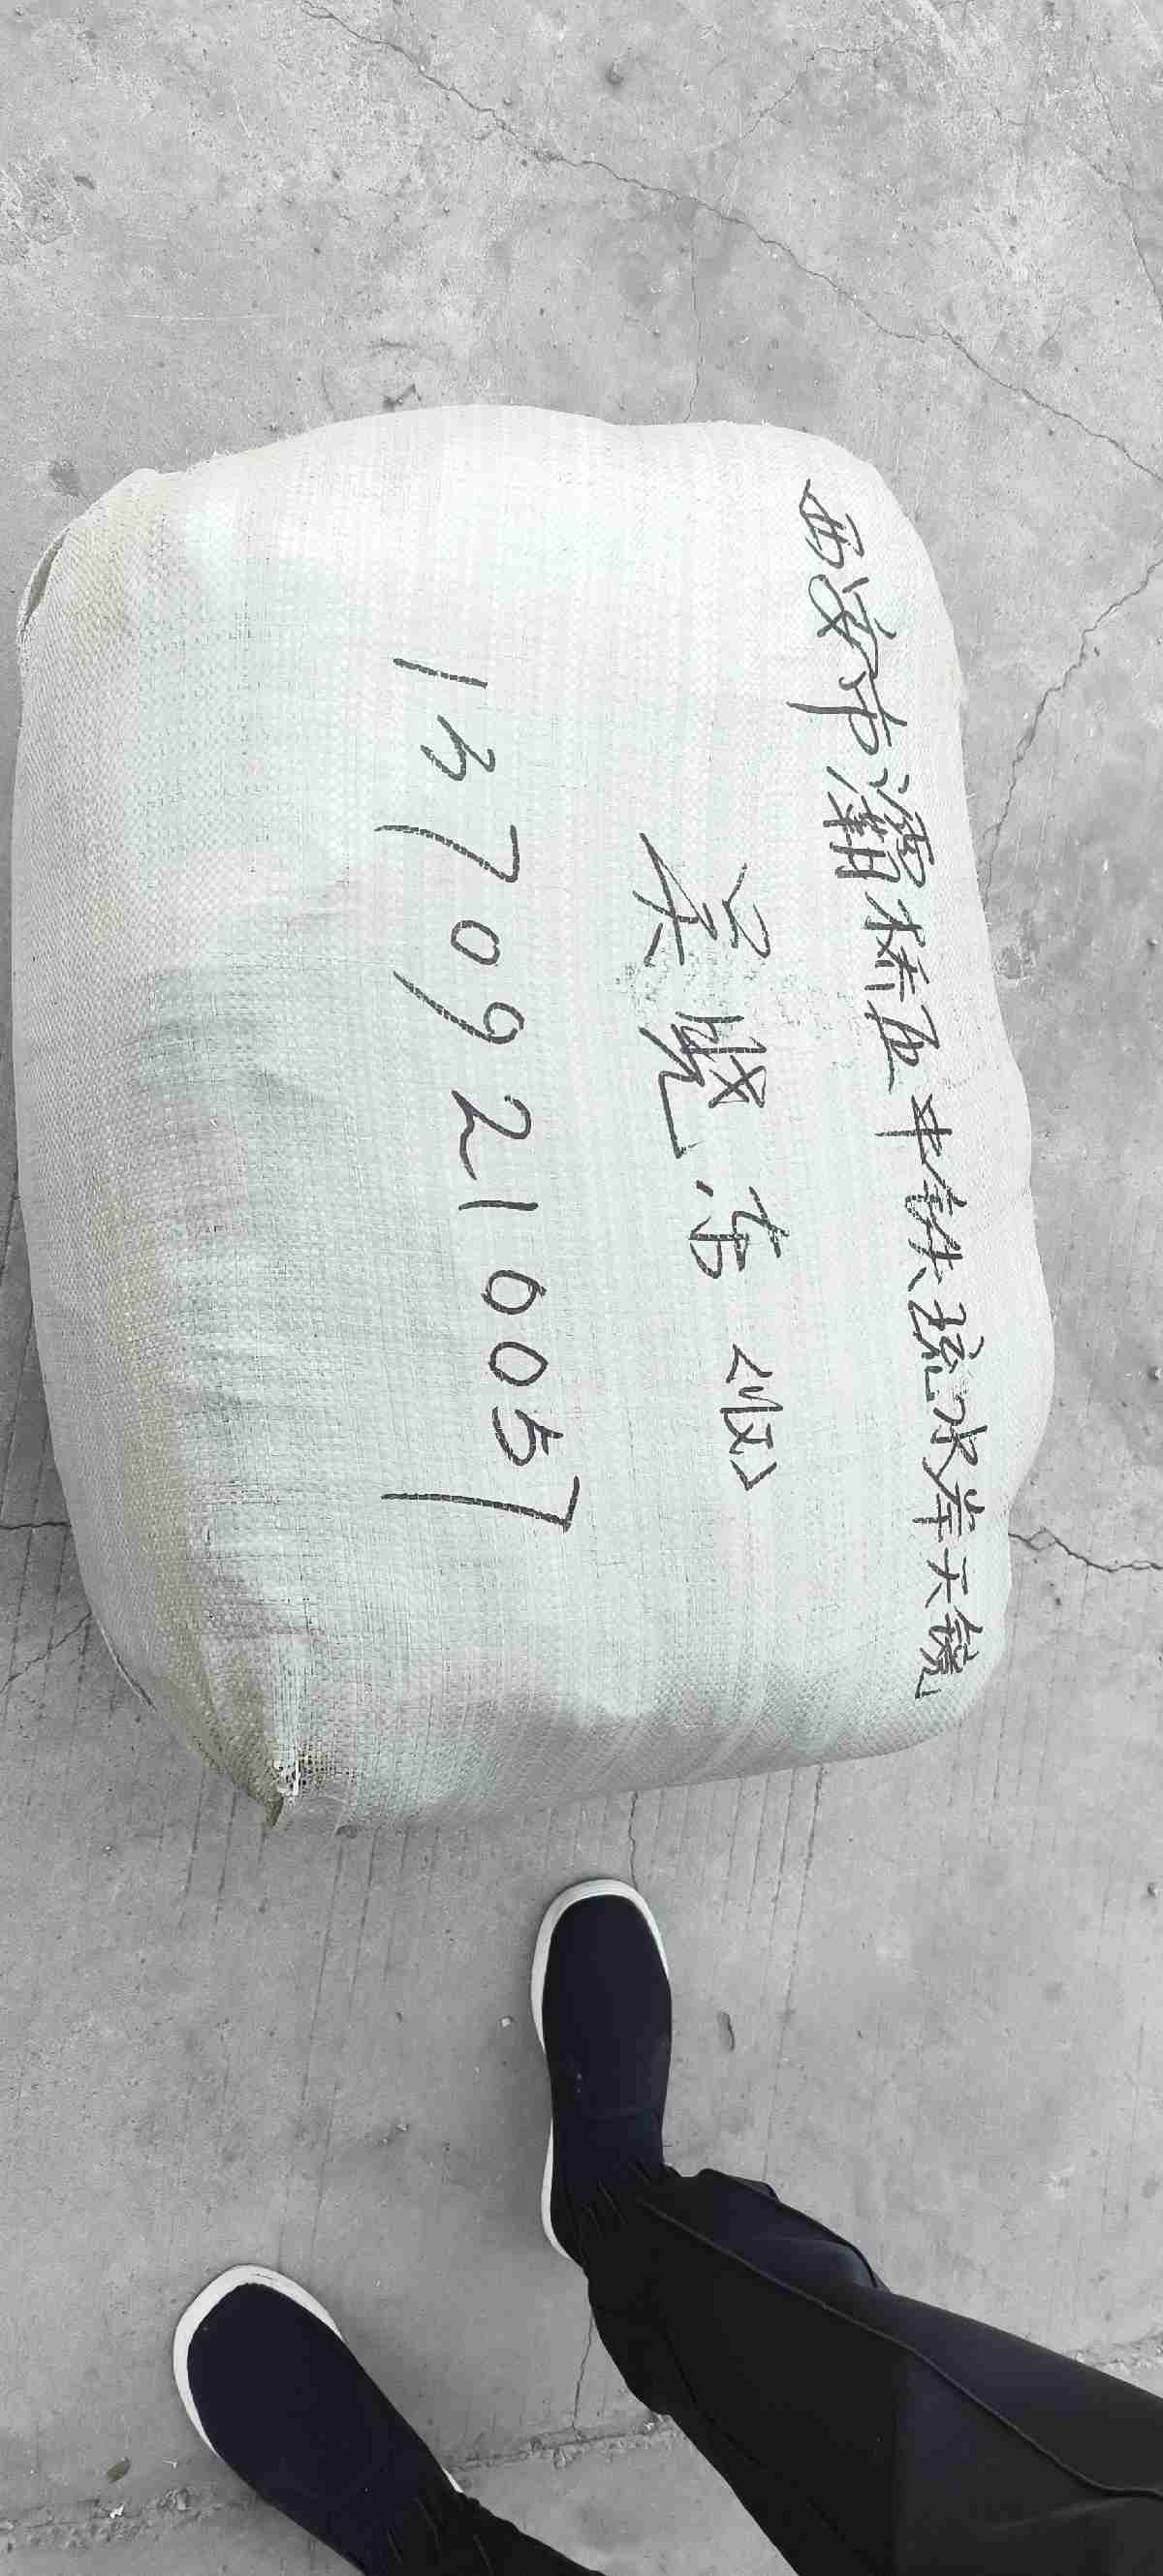 西安市灞桥区中铁琉水岸天镜
吴晓东〈收〉
13709210057